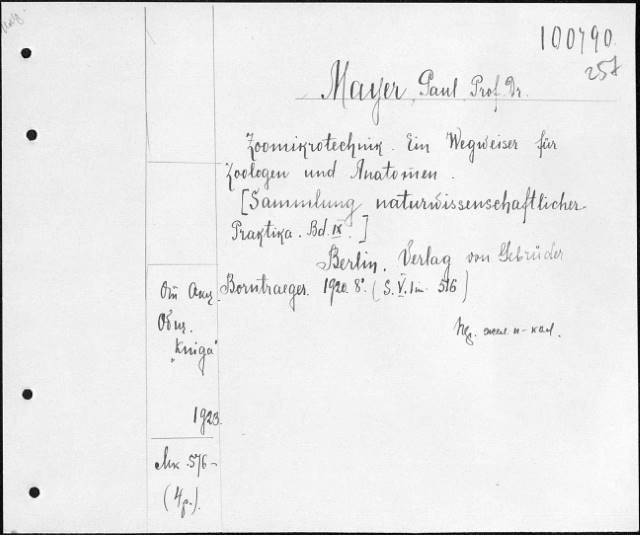 100790.
257
Mayer, Paul, Prof. Dr.
Zoomikrotechnik. Ein Wegweiser für
Zoologen und Anatomen.
[Sammlung naturwissenschaftlicher
Praktika. Bd. IX.]
Berlin. Verlag von Gebrüder
Borntraeger. 1920. 8°. (S. V. 516)
От Акц.
Общ.
"Kniga"
1923.
Мк 576-
(4р.).